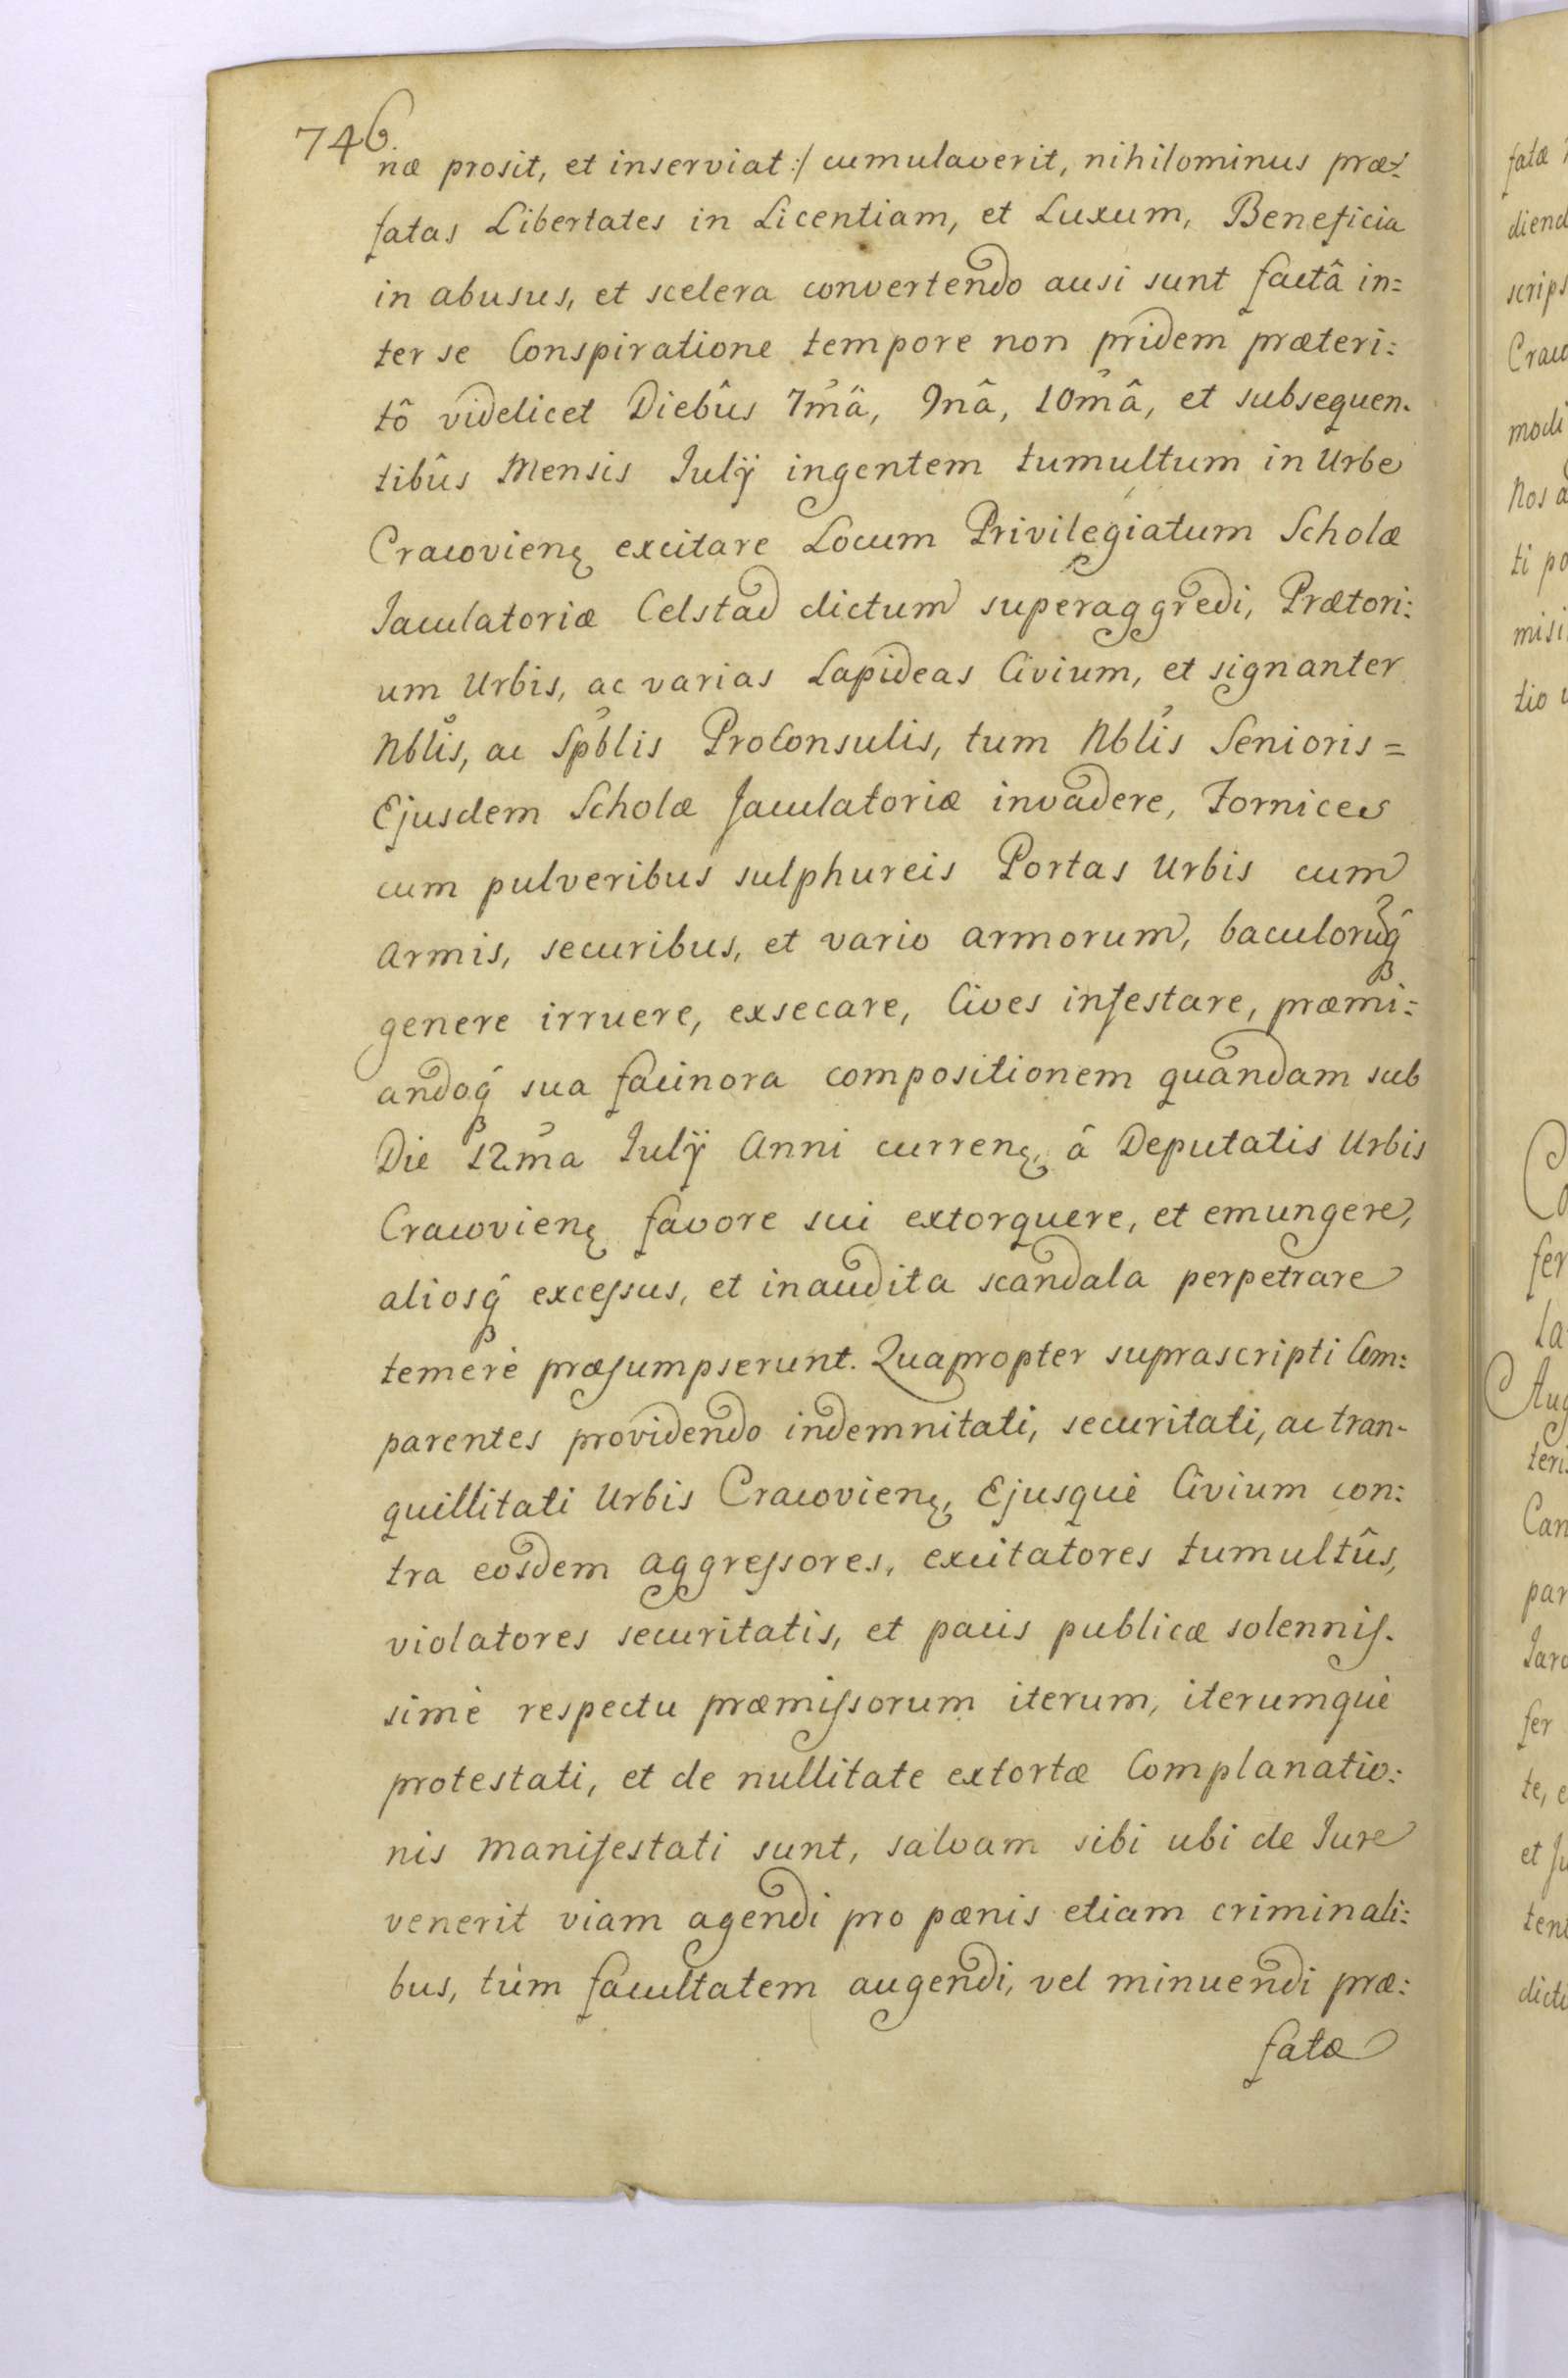 746.
næ prosit, et inserviat :/ cumulaverit, nihilominus præ:
fatas Libertates in Licentiam, et Luxum, Beneficia
in abusus, et scelera convertendo ausi sunt factâ in=
ter se Conspiratione tempore non pridem præteri:
tô videlicet Diebûs 7mâ, 9nâ, 10mâ, et subsequen.
tibûs Mensis Iulÿ ingentem tumultum in Urbe
Cracovienę excitare Locum Privilegiatum Scholæ
Iaculatoriæ Celstad dictum superaggredi, Prætori:
um Urbis, ac varias Lapideas Civium, et signanter
Nblis, ac Spblis ProConsulis, tum Nblis Senioris =
Ejusdem Scholæ Jaculatoriæ invadere, Fornices
cum pulveribus sulphureis Portas Urbis cum
armis, securibus, et vario armorum, baculoruq́
genere irruere, exsecare, Cives infestare, præmi:
andoq́ sua facinora compositionem quandam sub
Die 12ma Iulÿ Anni currenę, â Deputatis Urbis
Cracovienę favore sui extorquere, et emungere,
aliosq́ excessus, et inaudita scandala perpetrare
temerè præsumpserunt. Quapropter suprascripti Com:
parentes providendo indemnitati, securitati, ac tran-
quillitati Urbis Cracovienę, Ejusquè Civium con:
tra eosdem aggressores, excitatores tumultûs,
violatores securitatis, et pacis publicæ solennis.
simè respectu præmissorum iterum, iterumquè
protestati, et de nullitate extortæ Complanatio:
nis manifestati sunt, salvam sibi ubi de Iure
venerit viam agendi pro pænis etiam criminali:
bus, tùm facultatem augendi, vel minuendi præ:
fatæ
fatæ
diend
scrips
Craco
modi
Nos a
ti po
misi
tio
Co
fer
La
Aug
teri
Can
par
Iaro
fer
te, e
et Ju
tent
dicti